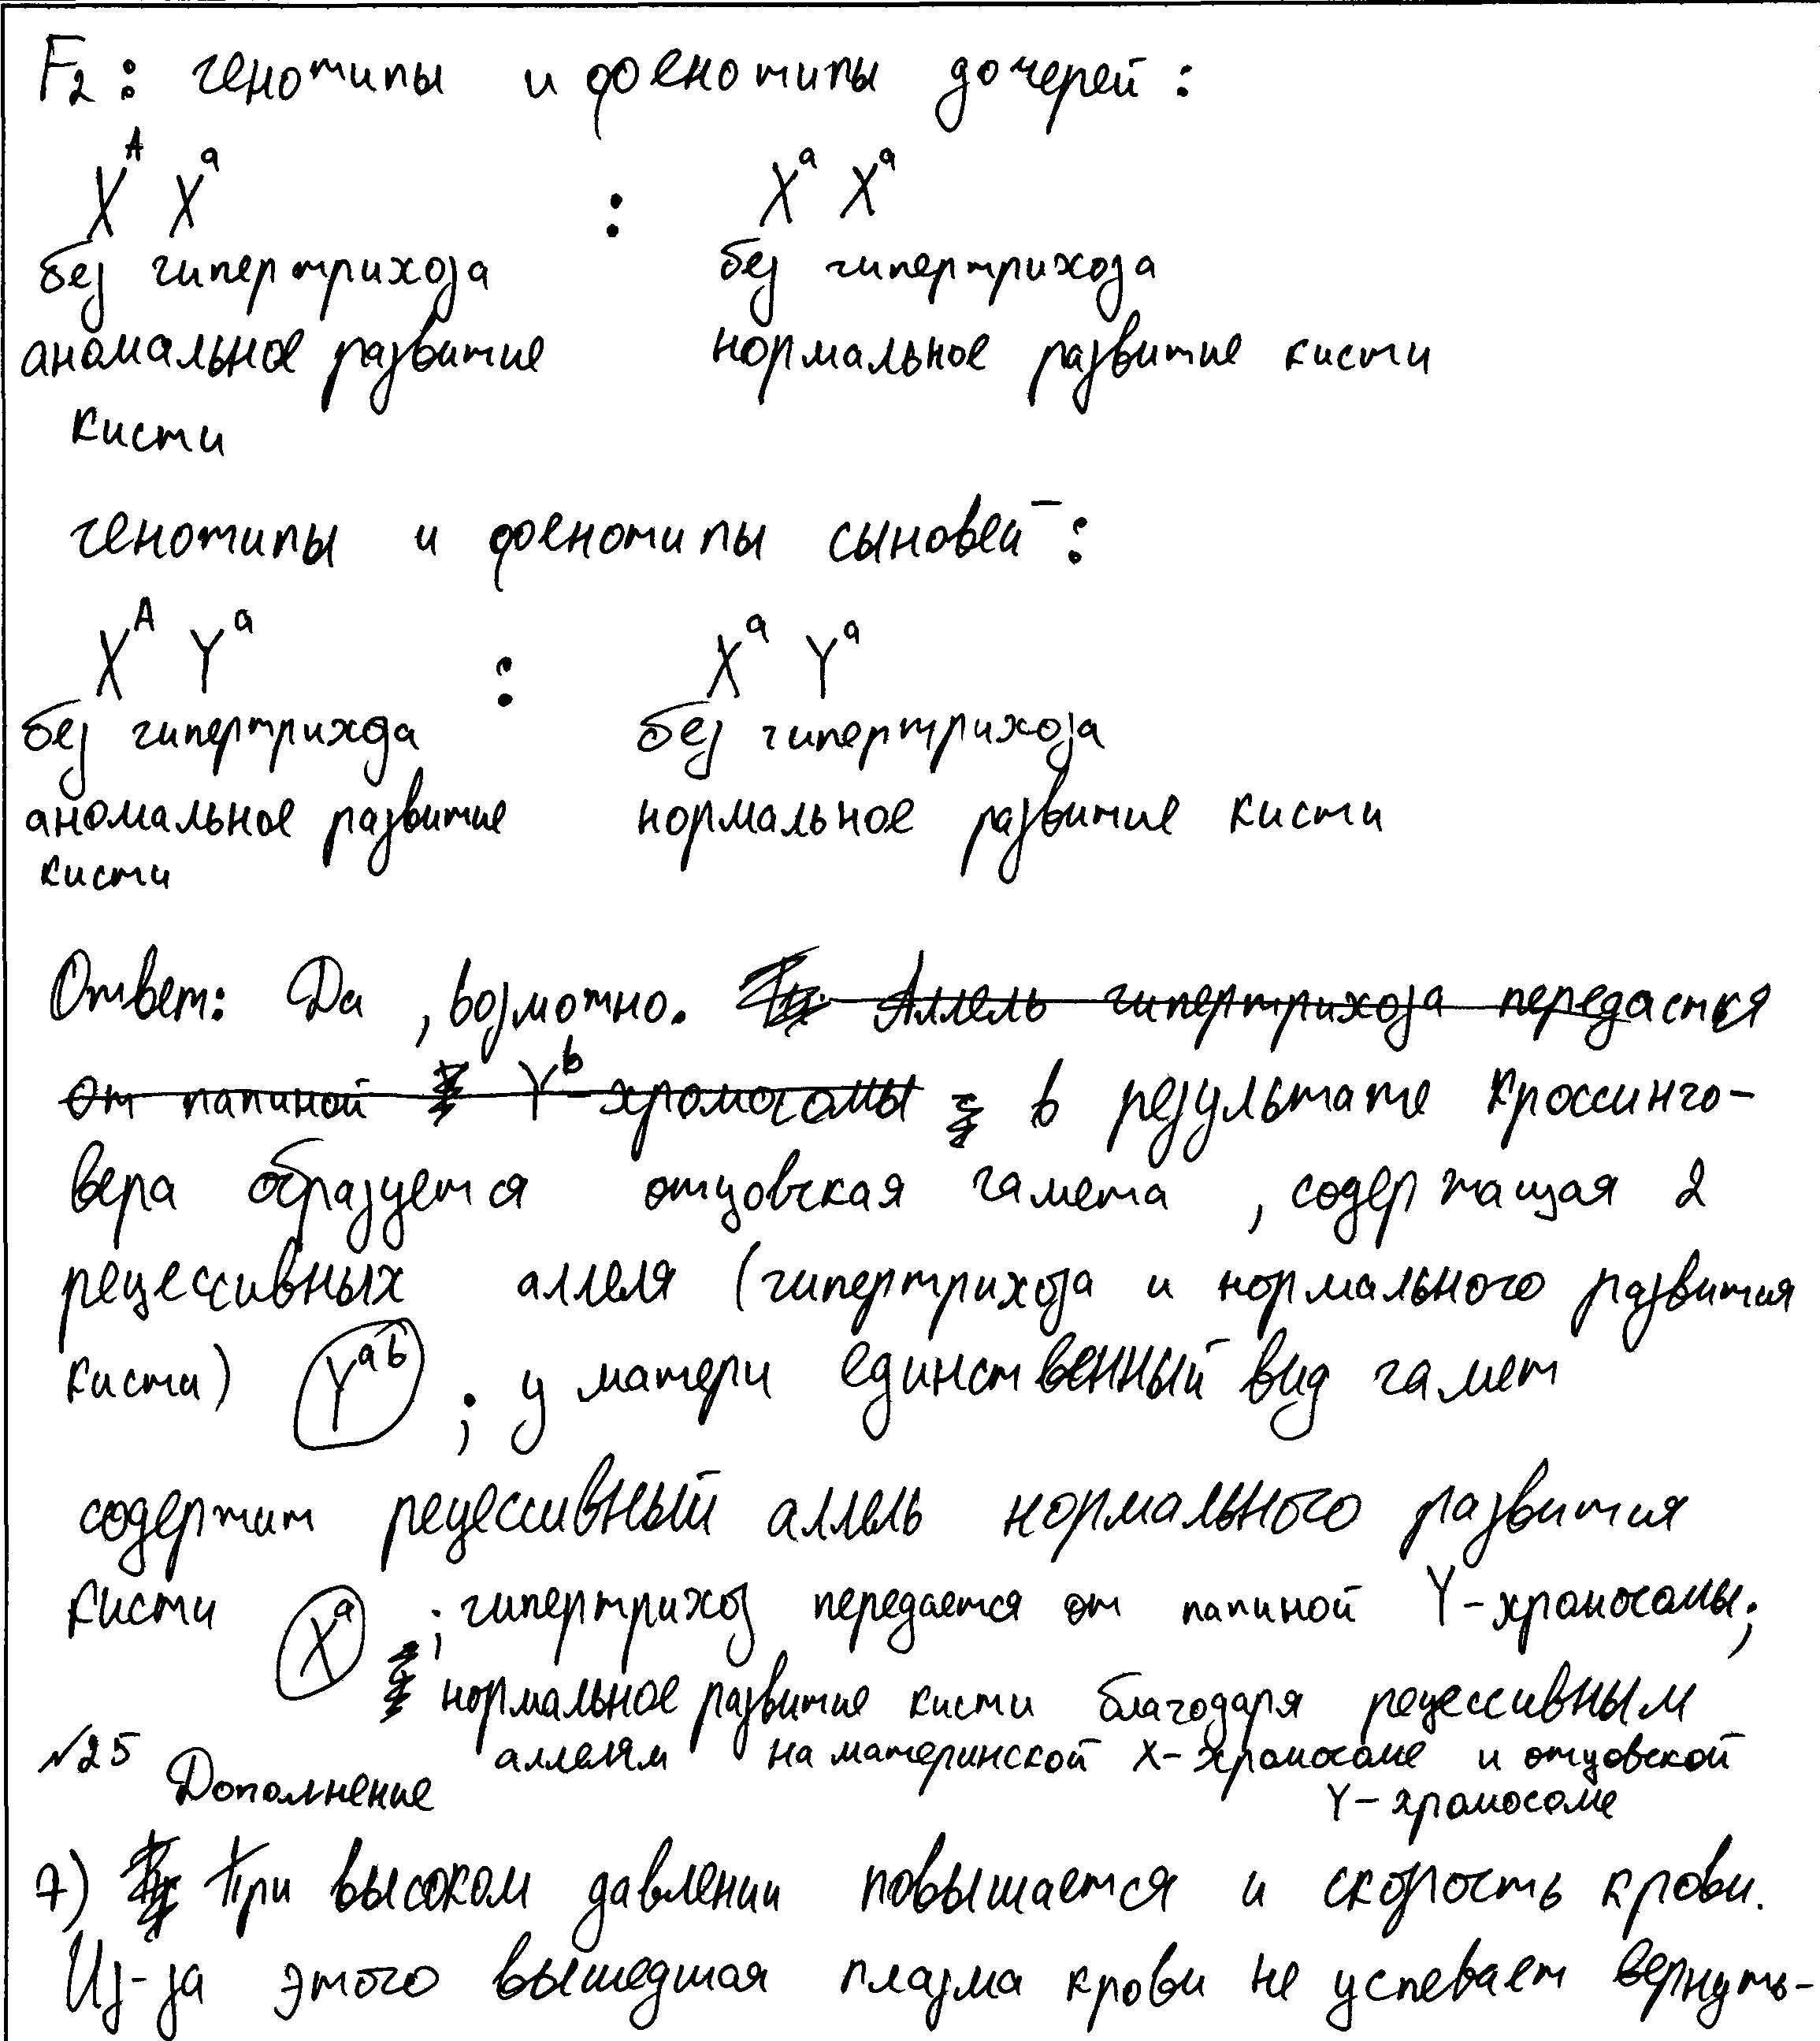 F₂: генотипы и фенотипы дочерей:
Xᴬ Xᵃ : Xᵃ Xᵃ
без гипертрихоза без гипертрихоза
аномальное развитие нормальное развитие кисти
кисти
генотипы и фенотипы сыновей:
Xᴬ Yᵃ : Xᵃ Yᵃ
без гипертрихоза без гипертрихоза
аномальное развитие нормальное развитие кисти
кисти
Ответ: Да, возможно. Аллель гипертрихоза передастся
от папиной Yᵇ-хромосомы в результате кроссинго-
вера образуется отцовская гамета, содержащая 2
рецессивных аллеля (гипертрихоза и нормального развития
кисти) Yᵃᵇ ; у матери единственный вид гамет
содержит рецессивный аллель нормального развития
кисти Xᵃ ; гипертрихоз передается от папиной Y-хромосомы;
нормальное развитие кисти благодаря рецессивным
аллелям на материнской X-хромосоме и отцовской
Y-хромосоме
№25 Дополнение
7) При высоком давлении повышается и скорость крови.
Из-за этого вышедшая плазма крови не успевает вернуть-